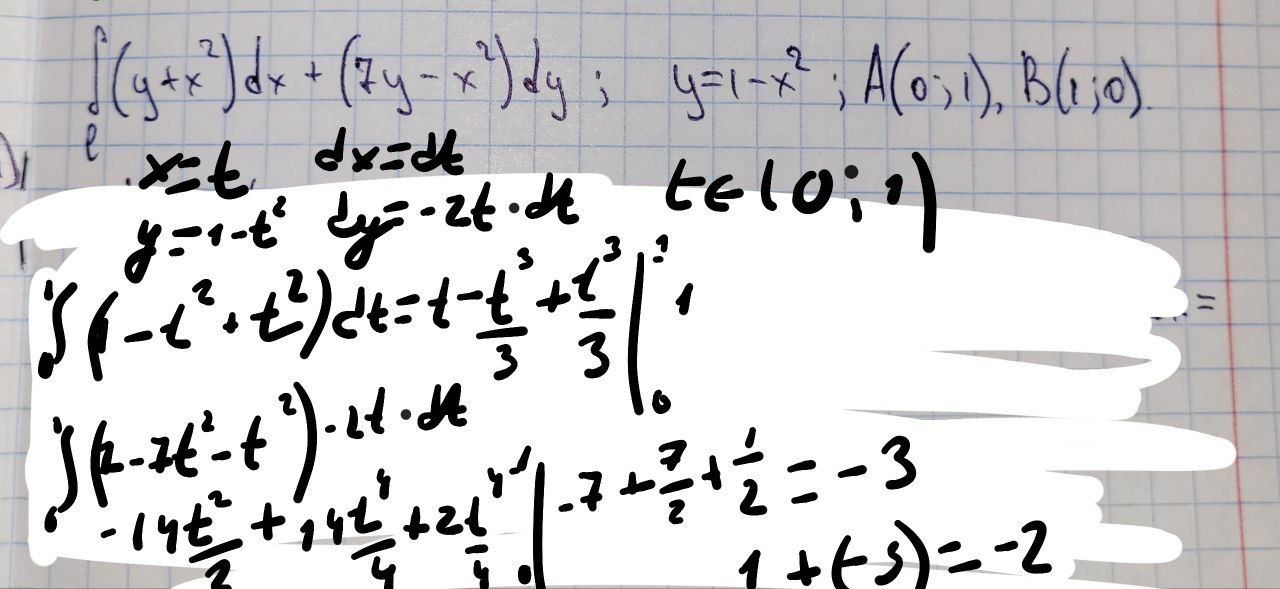 ∫(y+x²)dx + (7y - x²)dy ; y=1-x² ; A(0;1), B(1;0).
l
x=t dx=dt t∈(0;1)
y=1-t² dy=-2t·dt
∫₀¹(1-t²+t²)dt = t - t³/3 + t³/3 |₀¹ 1
=
∫₀¹(7-7t²-t²)·-2t·dt
-14t²/2 + 14t⁴/4 + 2t⁴/4 |₀¹ -7 + 7/2 + 1/2 = -3
1+(-3) = -2